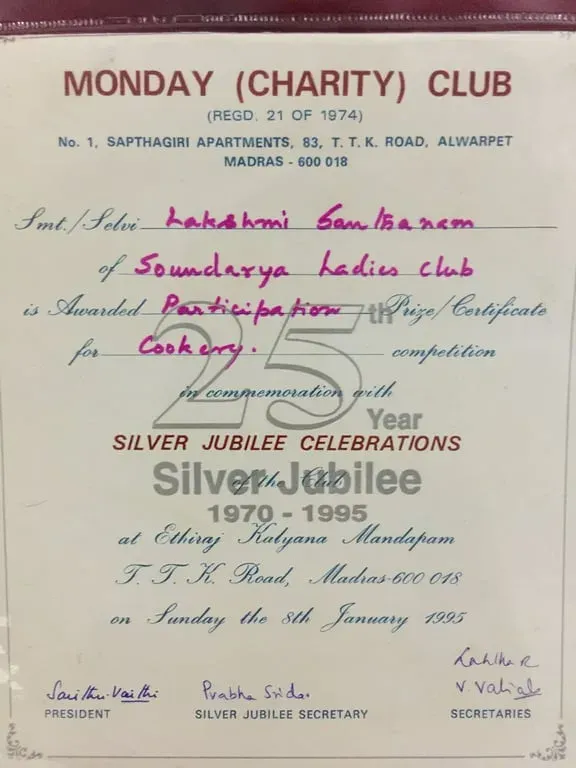 MONDAY (CHARITY) CLUB
(REGD. 21 OF 1974)
No. 1, SAPTHAGIRI APARTMENTS, 83, T. T. K. ROAD, ALWARPET
MADRAS - 600 018
Smt./Selvi Lakshmi Santhanam
of Soundarya Ladies Club
is Awarded Participation Prize/Certificate
for Cookery. competition
in commemoration with
25th Year
SILVER JUBILEE CELEBRATIONS
of the Club
Silver Jubilee
1970 - 1995
at Ethiraj Kalyana Mandapam
T. T. K. Road, Madras-600 018
on Sunday the 8th January 1995
Prabha
PRESIDENT SILVER JUBILEE SECRETARY SECRETARIES